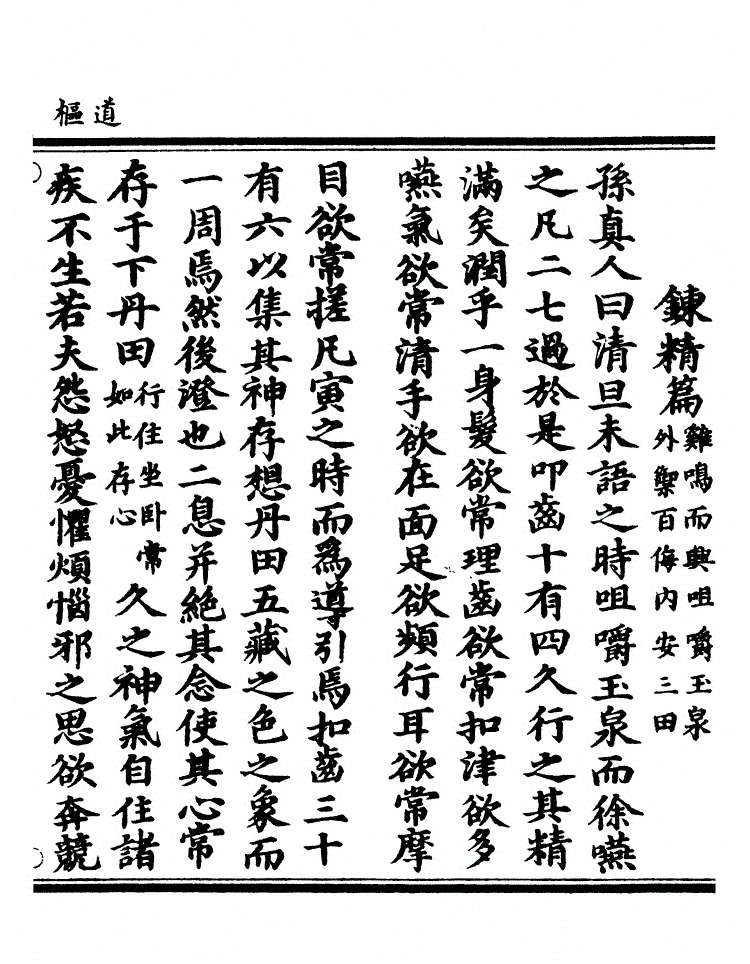 道樞
鍊精篇雞鳴而興咀嚼玉泉外禦百侮內安三田
孫真人曰清旦未語之時咀嚼玉泉而徐嚥
之凡二七過於是叩齒十有四久行之其精
滿矣潤乎一身髮欲常理齒欲常扣津欲多
嚥氣欲常清手欲在面足欲頻行耳欲常摩
目欲常搓凡寅之時而為導引焉扣齒三十
有六以集其神存想丹田五藏之色之象而
一周焉然後澄也二息并絕其念使其心常
存于下丹田行住坐卧常如此存心久之神氣自住諸
疾不生若夫怨怒憂懼煩惱邪之思欲奔競